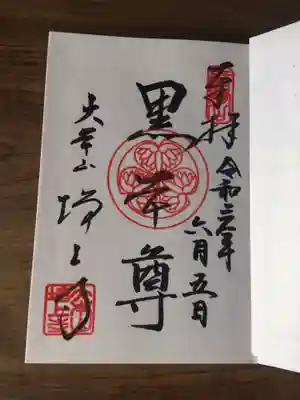 奉拝
令和六年
六月五日
黒本尊
大本山増上寺